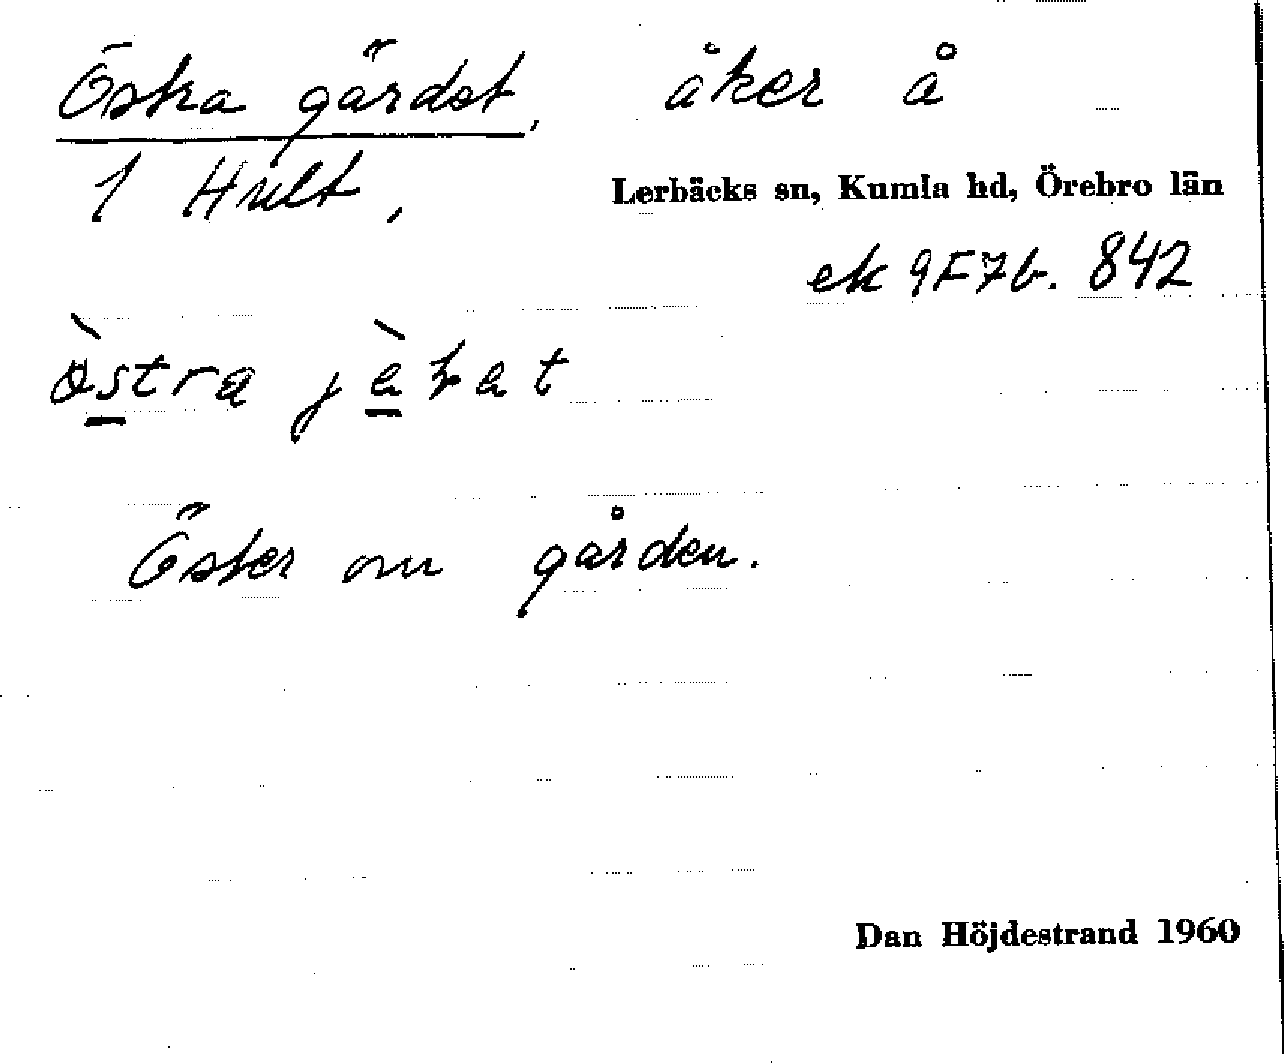 Östra gärdet, åker å
1 Hult,
Lerbäcks sn, Kumla hd, Örebro län
ek 9F7b. 842
östra jä
Öster om gården.
Dan Höjdestrand 1960